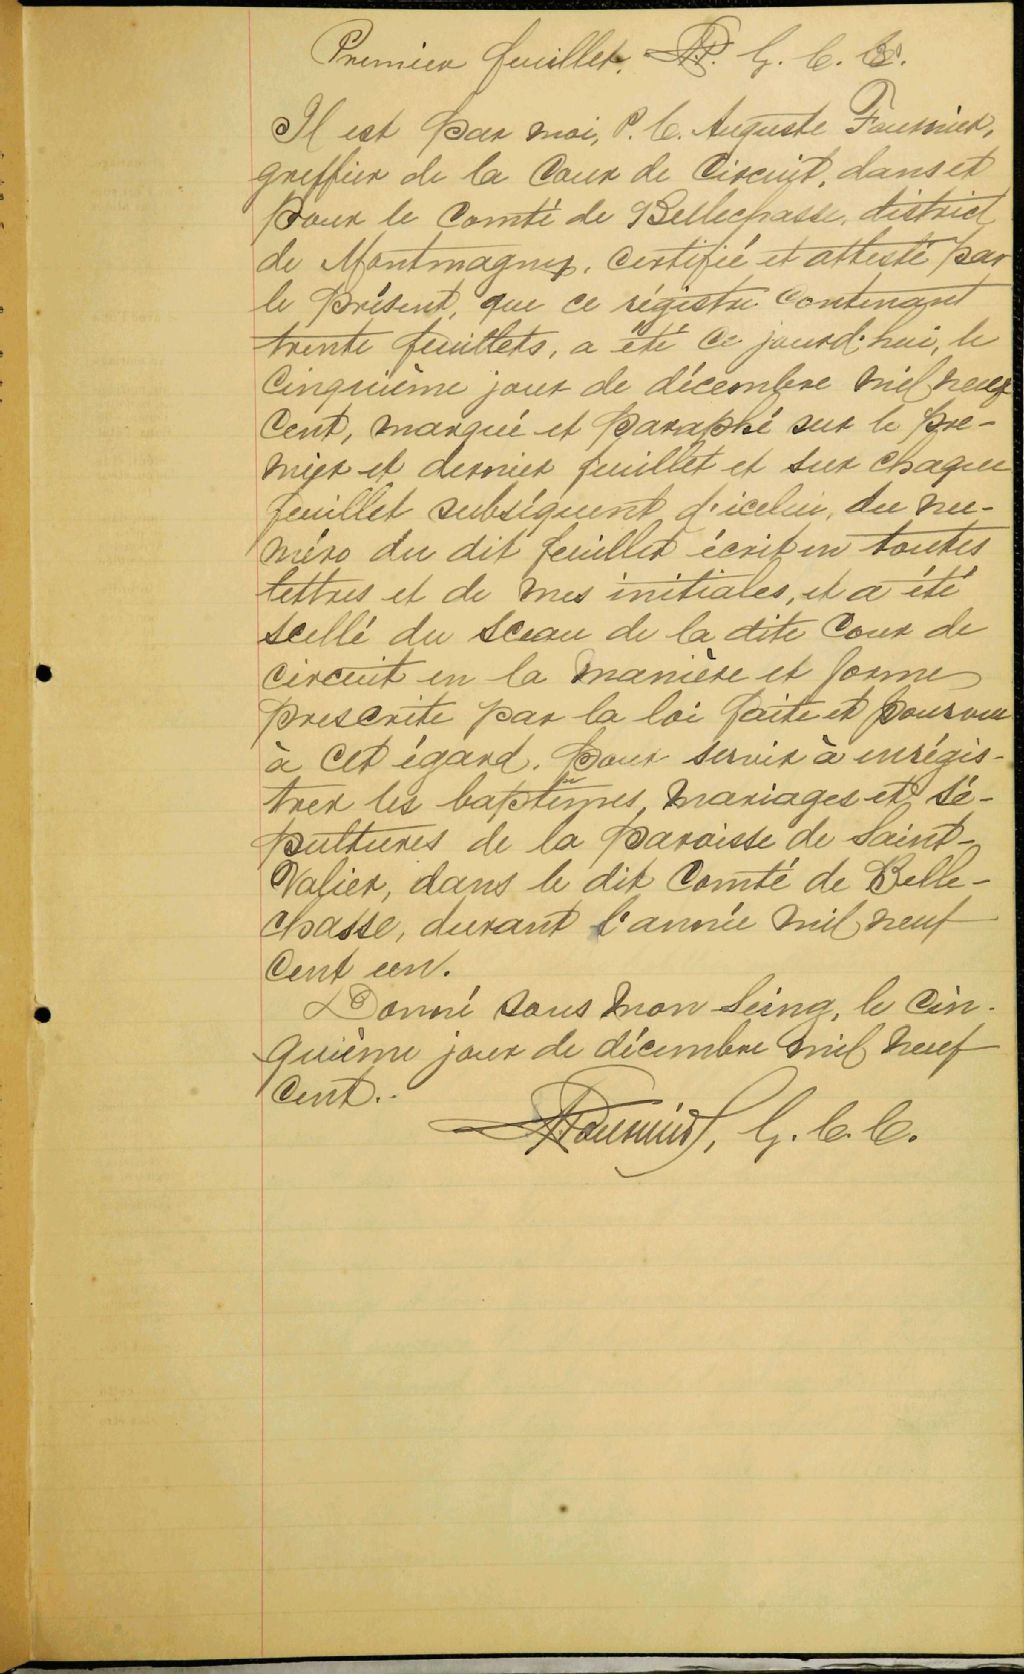 Premier feuillet. G. C. C.
Il est par moi, P. C. Auguste Fournier,
greffier de la Cour de Circuit, dans et
pour le Comté de Bellechasse, district
de Montmagny, certifié et attesté par
le présent, que ce régistre contenant
trente feuillets, a été ce jourd'hui, le
cinquième jour de décembre mil neuf
cent, marqué et paraphé sur le pre-
mier et dernier feuillet et sur chaque
feuillet subséquent d'icelui, du nu-
méro du dit feuillet écrit en toutes
lettres et de mes initiales, et a été
scellé du sceau de la dite Cour de
circuit en la manière et forme
prescrite par la loi faite et pourvue
à cet égard. Pour servir à enrégis-
trer les baptêmes, mariages et sé-
pultures de la paroisse de Saint-
Valier, dans le dit Comté de Belle-
chasse, durant l'année mil neuf
cent un.
Donné sous mon seing, le cin-
quième jour de décembre mil neuf
cent.
Fournier, G. C. C.